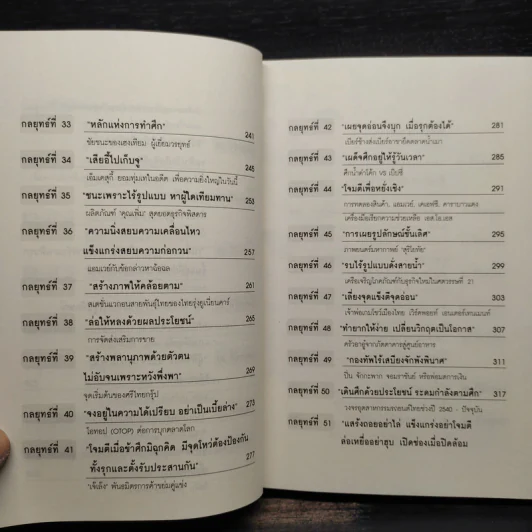 กลยุทธ์ที่ 33 "หลักแห่งการทำศึก" 241
ชัยชนะของเฮงเทียม ผู้เยี่ยมวรยุทธ์
กลยุทธ์ที่ 34 "เสียอี้ไปเก็บจู" 245
เอ็มเคสุกี้ ยอมทุ่มเทในอดีต เพื่อความยิ่งใหญ่ในวันนี้
กลยุทธ์ที่ 35 "ชนะเพราะไร้รูปแบบ หาผู้ใดเทียมทาน" 253
ผลิตภัณฑ์ "คุณเพิ่ม" สุดยอดธุรกิจพิสดาร
กลยุทธ์ที่ 36 "ความนิ่งสยบความเคลื่อนไหว
แข็งแกร่งสยบความก่อกวน" 257
แอมเวย์กับข้อกล่าวหาฉ้อฉล
กลยุทธ์ที่ 37 "สร้างภาพให้คล้อยตาม" 261
สเตชั่นแวกอนสายพันธุ์ไทยของไทยรุ่งยูเนี่ยนคาร์
กลยุทธ์ที่ 38 "ล่อให้หลงด้วยผลประโยชน์" 265
การจัดส่งเสริมการขาย
กลยุทธ์ที่ 39 "สร้างพลานุภาพด้วยตัวตน
ไม่อับจนเพราะหวังพึ่งพา" 269
จุดเริ่มต้นของศรีไทยกรุ๊ป
กลยุทธ์ที่ 40 "จงอยู่ในความได้เปรียบ อย่าเป็นเบี้ยล่าง" 273
โอทอป (OTOP) ต่อการบุกตลาดโลก
กลยุทธ์ที่ 41 "โจมตีเมื่อข้าศึกมิฉุกคิด มีจุดโหว่ต้องป้องกัน
ทั้งรุกและตั้งรับประสานกัน" 277
"เจ้เล้ง" พันธมิตรการค้าขยุ่มคู่แข่ง
กลยุทธ์ที่ 42 "เผยจุดอ่อนจึงบุก เมื่อรุกต้องได้" 281
เบียร์ช้างส่งเบียร์อาชาอัดตลาดน้ำเมา
กลยุทธ์ที่ 43 "เผด็จศึกอยู่ให้รู้วันเวลา" 285
ศึกน้ำดำโค้ก VS เป๊ปซี่
กลยุทธ์ที่ 44 "โจมตีเพื่อหยั่งเชิง" 291
การทดลองสินค้า, แอมเวย์, เคเอฟซี, คาราบาวแดง
เครื่องมือเรียกความช่วยเหลือ เอส.โอ.เอส
กลยุทธ์ที่ 45 "การเผยรูปลักษณ์ชั้นเลิศ" 295
ภาพยนตร์มหากาพย์ "สุริโยไท"
กลยุทธ์ที่ 46 "รบไร้รูปแบบดั่งสายน้ำ" 299
เครือเจริญโภคภัณฑ์กับธุรกิจใหม่ในศตวรรษที่ 21
กลยุทธ์ที่ 47 "เลี่ยงจุดแข็งตีจุดอ่อน" 303
เจ้าพ่อเกมโชว์เมืองไทย เวิร์คพอยท์ เอนเตอร์เทนเมนท์
กลยุทธ์ที่ 48 "ทำยากให้ง่าย เปลี่ยนวิกฤตเป็นโอกาส" 307
ครัวอาผู้จากภัตตาคารสู่ศูนย์อาหาร
กลยุทธ์ที่ 49 "กองทัพไร้เสบียงจักพังพินาศ" 311
ปิ่น จักกะพาก จอมราชันย์ หรือพ่อมดการเงิน
กลยุทธ์ที่ 50 "เดินศึกด้วยประโยชน์ ระดมกำลังตามศึก" 317
วงจรอุตสาหกรรมรถยนต์ไทยช่วงปี 2540 - ปัจจุบัน
กลยุทธ์ที่ 51 "แสร้งถอยอย่าไล่ แข็งแกร่งอย่าโจมตี
ล่อเหยื่ออย่าฮุบ เปิดช่องเมื่อปิดล้อม